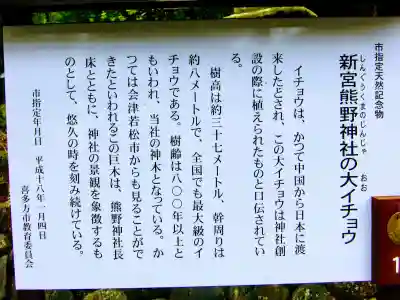 市指定天然記念物
しんぐうくまのじんじゃ おお
新宮熊野神社の大イチョウ
イチョウは、かつて中国から日本に渡
来したとされ、この大イチョウは神社創
設の際に植えられたものと口伝されてい
る。
樹高は約三十七メートル、幹周りは
約八メートルで、全国でも最大級のイ
チョウである。樹齢は八〇〇年以上と
もいわれ、当社の神木となっている。か
つては会津若松市からも見ることがで
きたといわれるこの巨木は、熊野神社長
床とともに、神社の景観を象徴するも
のとして、悠久の時を刻み続けている。
市指定年月日 平成十八年一月四日
喜多方市教育委員会
1